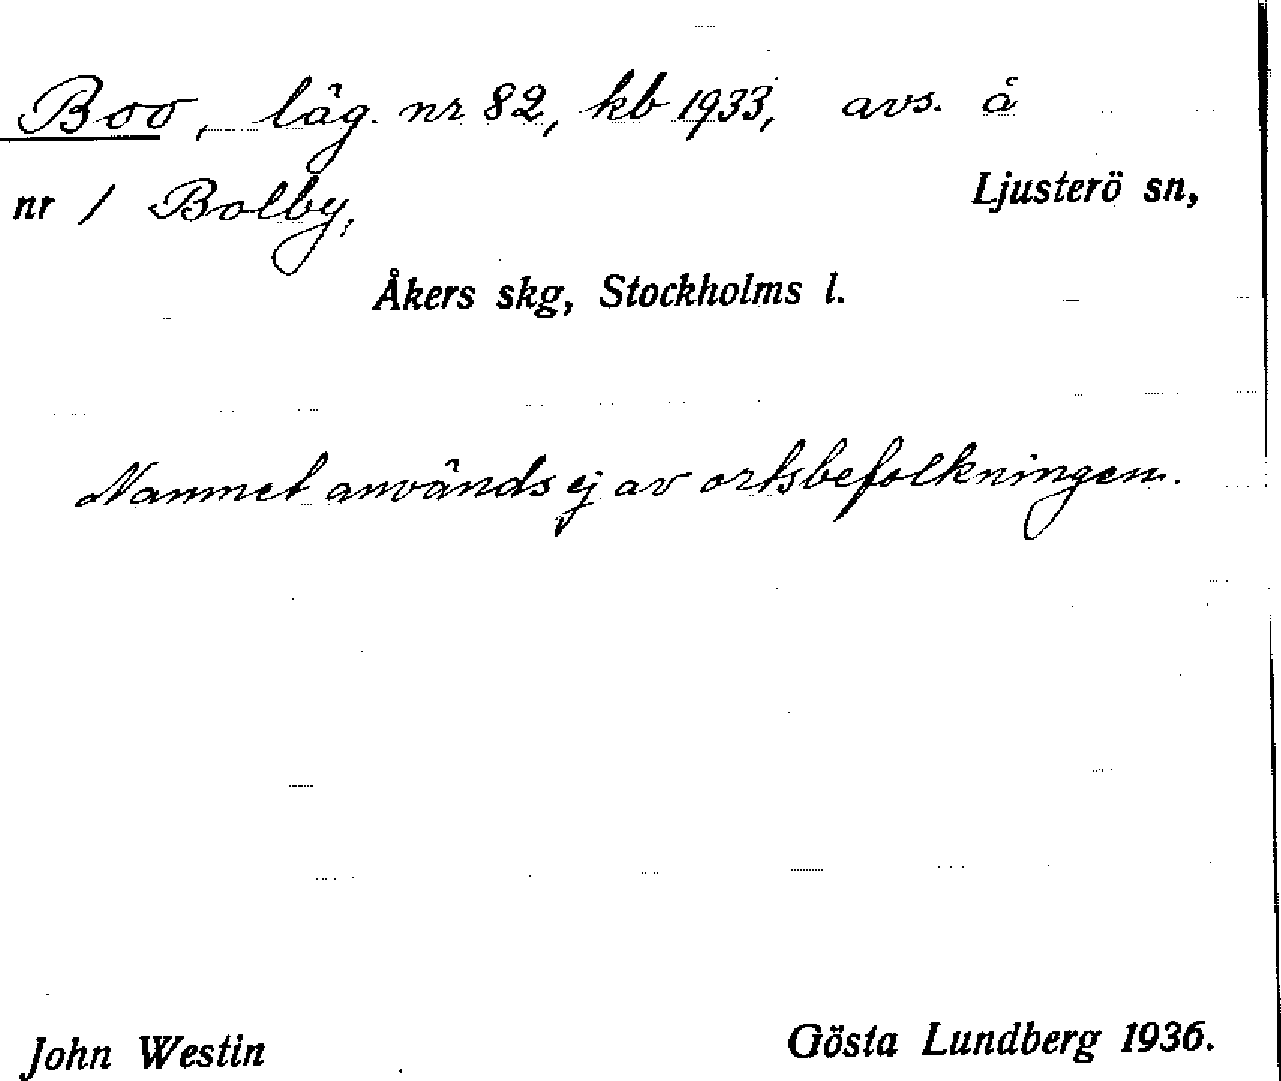 Boo, läg. nr 82, kb 1933, avs. å
nr 1 Bolby, Ljusterö sn,
Åkers skg, Stockholms l.
Namnet används ej av ortsbefolkningen.
John Westin Gösta Lundberg 1936.